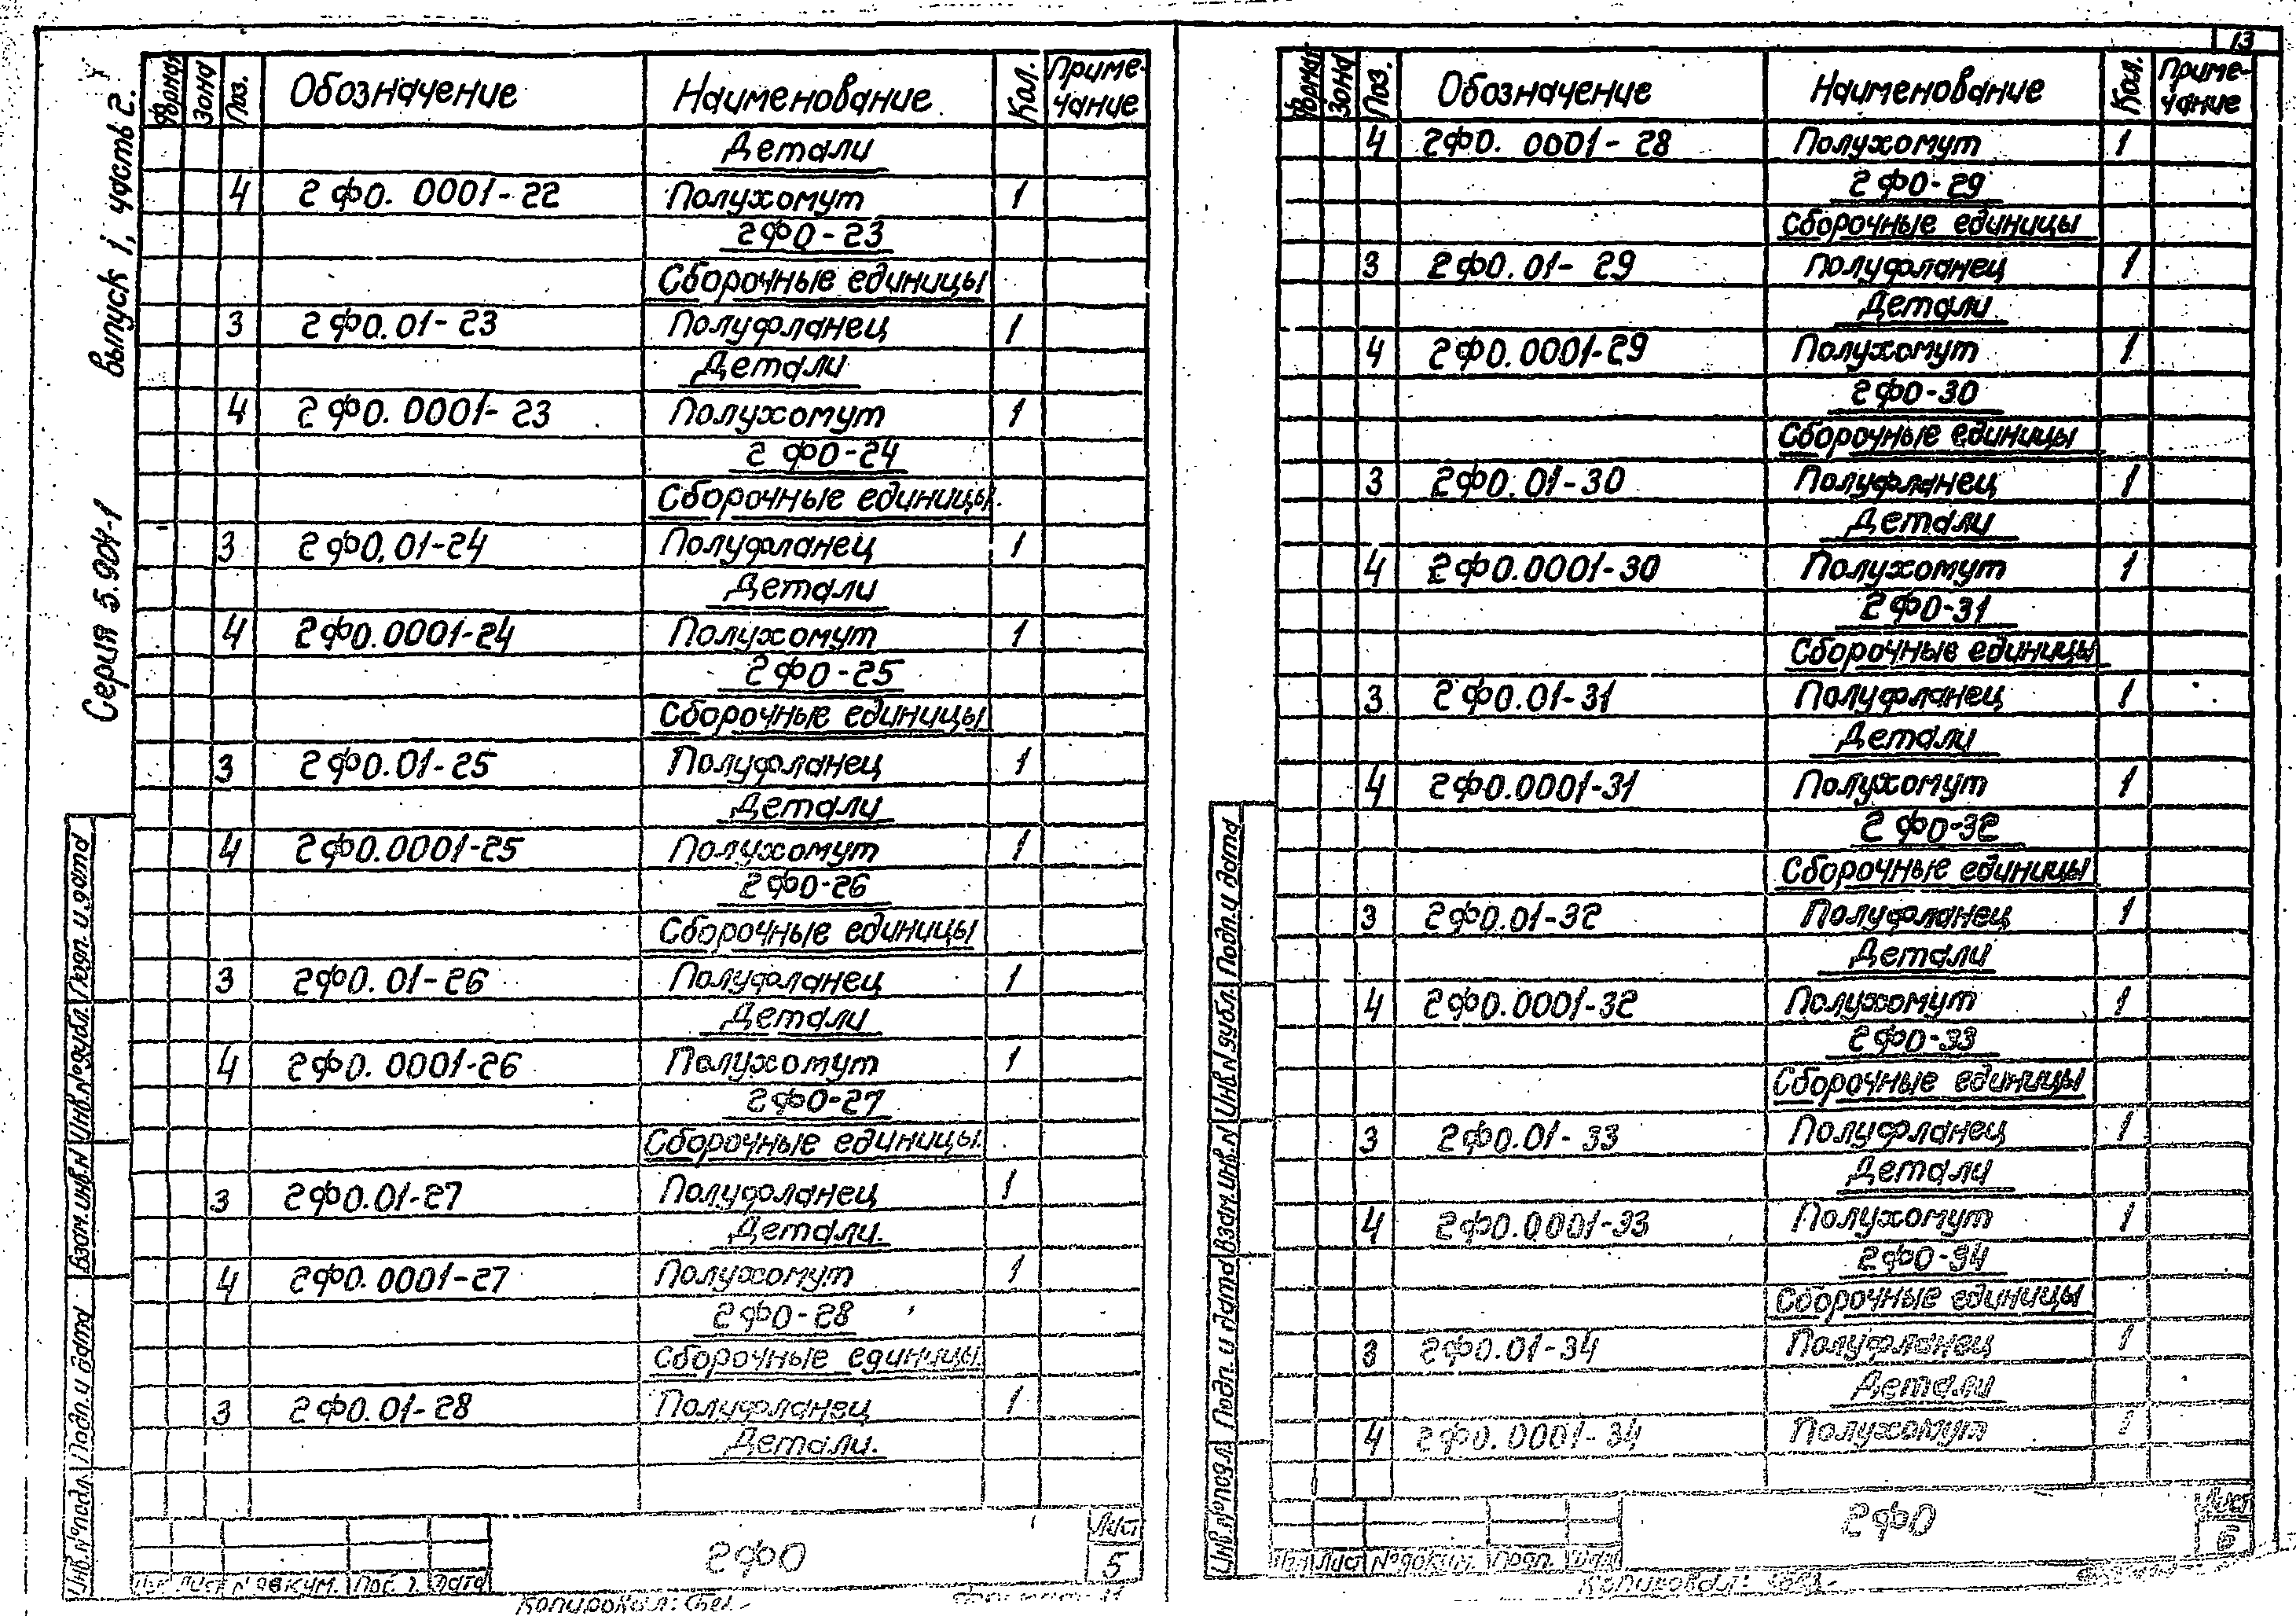 13
Серия 5.904-1 выпуск 1, часть 2.
Формат Зона Поз. Обозначение Наименование Кол. Приме-чание
Детали
4 2ФО. 0001-22 Полухомут 1
2ФО-23
Сборочные единицы
3 2ФО.01-23 Полуфланец 1
Детали
4 2ФО.0001-23 Полухомут 1
2ФО-24
Сборочные единицы
3 2ФО.01-24 Полуфланец 1
Детали
4 2ФО.0001-24 Полухомут 1
2ФО-25
Сборочные единицы
3 2ФО.01-25 Полуфланец 1
Детали
4 2ФО.0001-25 Полухомут 1
2ФО-26
Сборочные единицы
3 2ФО.01-26 Полуфланец 1
Детали
4 2ФО.0001-26 Полухомут 1
2ФО-27
Сборочные единицы.
3 2ФО.01-27 Полуфланец 1
Детали.
4 2ФО.0001-27 Полухомут 1
2ФО-28
Сборочные единицы.
3 2ФО.01-28 Полуфланец 1
Детали.
Инв.№ подл. Подп. и дата Взам.инв.№ Инв.№ дубл. Подп. и дата
Лист № докум. Дата
2ФО
Лист
5
Копировал:
Формат 11
Формат Зона Поз. Обозначение Наименование Кол. Приме-чание
4 2ФО. 0001-28 Полухомут 1
2ФО-29
Сборочные единицы
3 2ФО.01-29 Полуфланец 1
Детали
4 2ФО.0001-29 Полухомут 1
2ФО-30
Сборочные единицы
3 2ФО.01-30 Полуфланец 1
Детали
4 2ФО.0001-30 Полухомут 1
2ФО-31
Сборочные единицы
3 2ФО.01-31 Полуфланец 1
Детали
4 2ФО.0001-31 Полухомут 1
2ФО-32
Сборочные единицы
3 2ФО.01-32 Полуфланец 1
Детали
4 2ФО.0001-32 Полухомут 1
2ФО-33
Сборочные единицы
3 2ФО.01-33 Полуфланец 1
Детали
4 2ФО.0001-33 Полухомут 1
2ФО-34
Сборочные единицы
3 2ФО.01-34 Полуфланец 1
Детали
4 2ФО.0001-34 Полухомут 1
Инв.№ подл. Подп. и дата Взам.инв.№ Инв.№ дубл. Подп. и дата
Лист № докум. Подп. Дата
2ФО
Лист
6
Копировал: